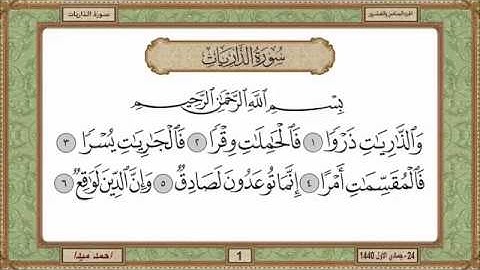 سورة الذاريات
الجزء السادس والعشرون
سُورَةُ الذَّارِيَاتِ
بِسْمِ اللَّهِ الرَّحْمَٰنِ الرَّحِيمِ
وَالذَّارِيَاتِ ذَرْوًا ١ فَالْحَامِلَاتِ وِقْرًا ٢ فَالْجَارِيَاتِ يُسْرًا ٣
فَالْمُقَسِّمَاتِ أَمْرًا ٤ إِنَّمَا تُوعَدُونَ لَصَادِقٌ ٥ وَإِنَّ الدِّينَ لَوَاقِعٌ ٦
24 - جمادي الأول 1440
1
أحمد